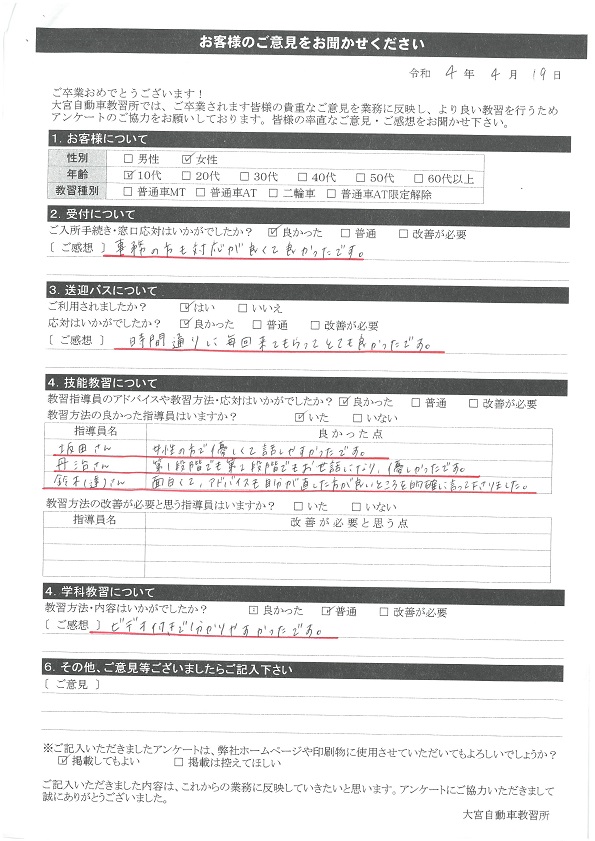 お客様のご意見をお聞かせください
令和 4 年 4 月 19 日
ご卒業おめでとうございます！
大宮自動車教習所では、ご卒業されます皆様の貴重なご意見を業務に反映し、より良い教習を行うため
アンケートのご協力をお願いしております。皆様の率直なご意見・ご感想をお聞かせ下さい。
1. お客様について
性別 □ 男性 ☑ 女性
年齢 ☑ 10代 □ 20代 □ 30代 □ 40代 □ 50代 □ 60代以上
教習種別 □ 普通車MT □ 普通車AT □ 二輪車 □ 普通車AT限定解除
2. 受付について
ご入所手続き・窓口応対はいかがでしたか？ ☑ 良かった □ 普通 □ 改善が必要
〔 ご感想 〕 事務の方も対応が良くて良かったです。
3. 送迎バスについて
ご利用されましたか？ ☑ はい □ いいえ
応対はいかがでしたか？ ☑ 良かった □ 普通 □ 改善が必要
〔 ご感想 〕 時間通りに毎回来てもらってとても良かったです。
4. 技能教習について
教習指導員のアドバイスや教習方法・応対はいかがでしたか？ ☑ 良かった □ 普通 □ 改善が必要
教習方法の良かった指導員はいますか？ ☑ いた □ いない
指導員名 良かった点
坂田さん 女性の方で優しくて話しやすかったです。
丹治さん 第1段階でも第2段階でもお世話になり、優しかったです。
鈴木(達)さん 面白くて、アドバイスも自分が直した方が良いところを的確に言って下さりました。
教習方法の改善が必要と思う指導員はいますか？ □ いた □ いない
指導員名 改善が必要と思う点
4. 学科教習について
教習方法・内容はいかがでしたか？ □ 良かった ☑ 普通 □ 改善が必要
〔 ご感想 〕 ビデオ付きで分かりやすかったです。
6. その他、ご意見等ございましたらご記入下さい
〔 ご意見 〕
※ご記入いただきましたアンケートは、弊社ホームページや印刷物に使用させていただいてもよろしいでしょうか？
☑ 掲載してもよい □ 掲載は控えてほしい
ご記入いただきました内容は、これからの業務に反映していきたいと思います。アンケートにご協力いただきまして
誠にありがとうございました。
大宮自動車教習所